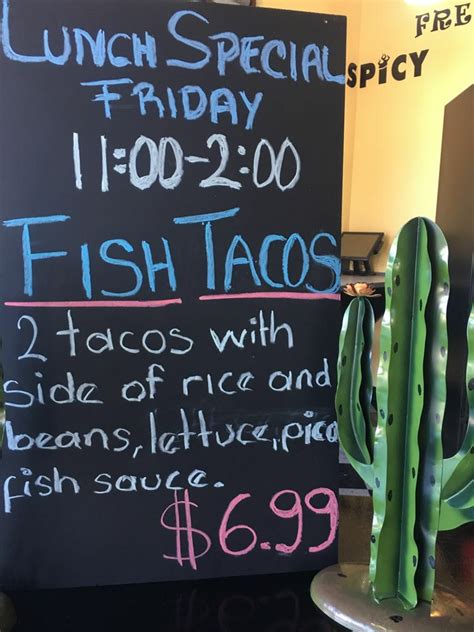 LUNCH SPECIAL
FRIDAY
11:00-2:00
FISH TACOS
2 tacos with
side of rice and
beans, lettuce, pico
fish sauce.
$6.99
FRE
SPICY